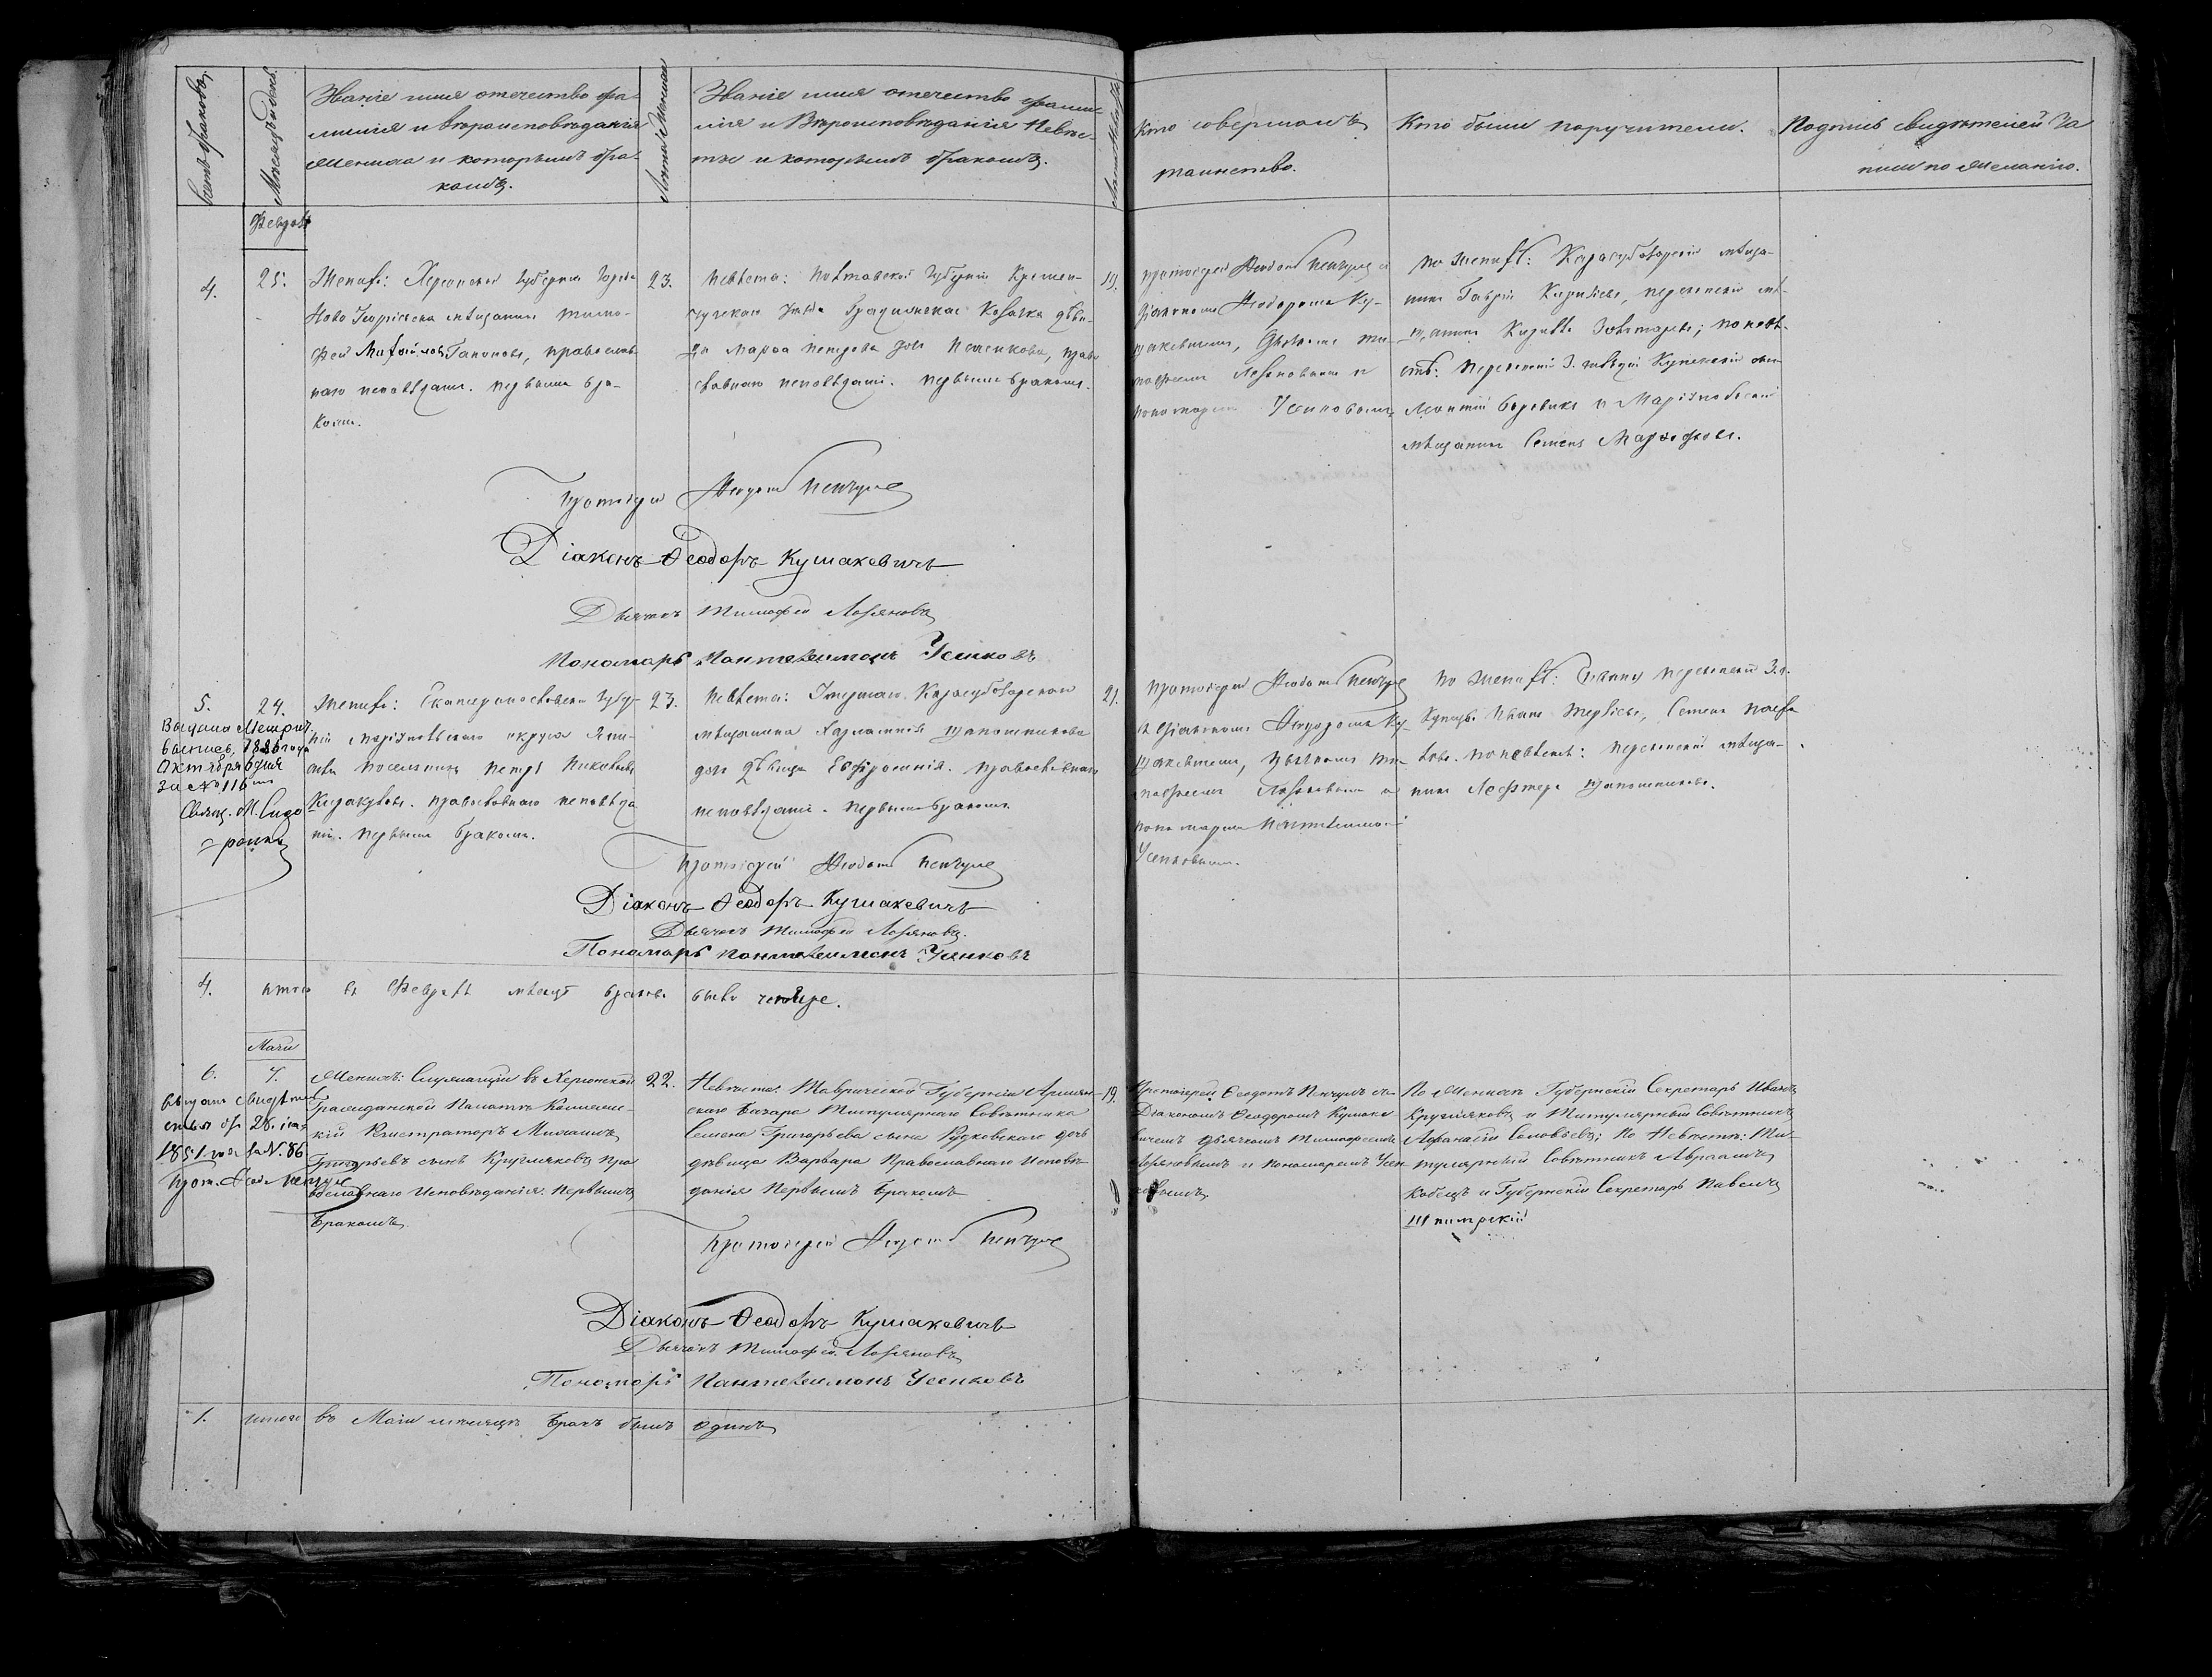 Счетъ браковъ.
Мѣсяцъ и день.
Званіе имя отечество фа-
милія и вѣроисповѣданія
жениха и которымъ бра-
комъ.
Лѣта жениха
Званіе имя отечество фами-
лія и Вѣроисповѣданія Невѣс-
ты и которымъ бракомъ.
Лѣта Невѣсты
Кто совершалъ
таинство.
Кто были поручители.
Подпись свидѣтелей За
писи по желанію.
Февраль
4.
25.
Женихъ: Херсонской губерніи города
Ново Георгіевска мѣщанинъ Тимо-
фей Гапоновъ, православ
наго исповѣданія. первымъ бра-
комъ.
23.
Невѣста: Полтавской губерніи Кремен-
чугскаго уѣзда козачка дѣви-
ца Марѳа Петрова дочь право
славнаго исповѣданія. первымъ бракомъ.
19.
протоіерей Ѳеодотъ Пенчулъ съ
діакономъ Ѳеодоромъ Ку-
шакевичемъ, Дьячкомъ ти-
мофеемъ Лофяновымъ и
пономаремъ Усенковымъ
по женихѣ: Карасубазарскій мѣща-
нинъ Гаврiилъ перекопскій мѣ-
щанинъ по невѣ-
стѣ: перекопскій 3. гильдіи Купеческій сынъ
Леонтій Боровикъ и Маріупольскій
мѣщанинъ Семенъ
Протоіерей Ѳеодотъ Пенчулъ
Діаконъ Ѳеодоръ Кушакевичъ
Дьячокъ Тимофей Лофяновъ
Пономарь Пантелеимонъ Усенковъ
5.
24.
Выдана Метрич.
выпись, 1886 года
Октября 6 дня
за № 116мъ
Свящ. М. Сидо
ренко
Женихъ: Екатеринославской губер-
ніи Маріупольскаго округа
поселянинъ Петръ
православнаго исповѣда
нія. первымъ бракомъ.
23.
Невѣста: умершаго Карасубазарскаго
мѣщанина Харлампія
дочь дѣвица Евфросинія. православнаго
исповѣданія. первымъ бракомъ
21.
протоіерей Ѳеодотъ Пенчулъ
съ діакономъ Ѳеодоромъ Ку-
шакевичемъ, дьячкомъ ти-
мофеемъ Лофяновымъ и
пономаремъ Пантелеимоном
Усенковымъ.
по женихѣ: перекопскій 3. г.
Купецъ Семенъ
по невѣстѣ: перекопскій мѣща-
нинъ
Протоіерей Ѳеодотъ Пенчулъ
Діаконъ Ѳеодоръ Кушакевичъ
Дьячокъ Тимофей Лофяновъ.
Пономарь Пантелеимонъ Усенковъ
4.
итого въ Февралѣ мѣсяцѣ браковъ было четыре.
Маія
6.
7.
выдано свидѣтел
ство 28.
1851 года за N. 86
прот. Ѳеод. Пенчулъ
Женихъ: Служащій въ Херсонской
Гражданской Палатѣ Коллежс-
кій Регистраторъ Михаилъ
Григорьевъ сынъ Кругляковъ Пра
вославнаго Исповѣданія. Первымъ
Бракомъ.
22.
Невѣста: Таврической Губерніи Армян-
скаго Базара Титулярнаго Совѣтника
Семена Григорьева сына дочь
дѣвица Варвара Православнаго Исповѣ-
данія Первымъ Бракомъ
19.
Протоіерей Ѳеодотъ Пенчулъ съ
Діакономъ Ѳеодоромъ Кушаке
вичемъ дьячкомъ Тимофеемъ
Лофяновымъ и пономаремъ Усен
ковымъ
По Женихѣ Губернскій Секретарь Иванъ
Кругляковъ и Титулярный Совѣтникъ
Афанасій Соловьевъ; По Невѣстѣ: Ти-
тулярный Совѣтникъ Авраамъ
Кобецъ и Губернскій Секретарь Павелъ
Протоіерей Ѳеодотъ Пенчулъ
Діаконъ Ѳеодоръ Кушакевичъ
Дьячокъ Тимофей Лофяновъ
Пономарь Пантелеимонъ Усенковъ
1.
итого въ Маіи мѣсяцѣ Бракъ былъ одинъ